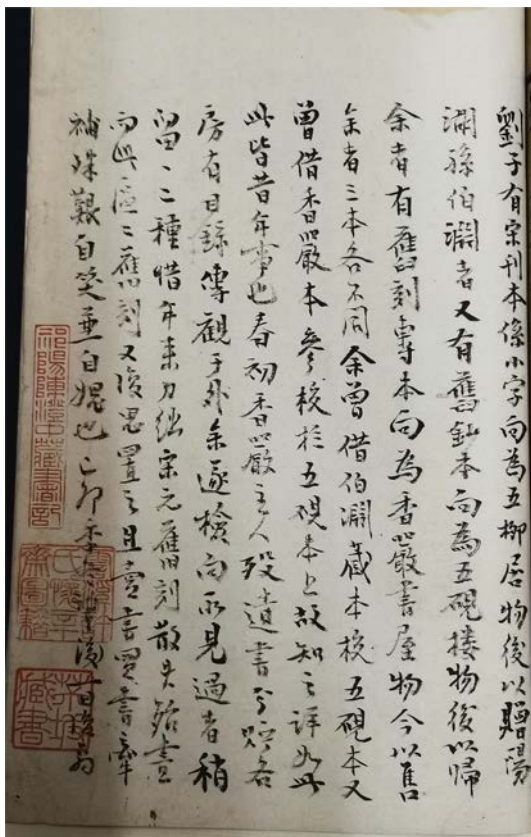 劉子有宋刊本係小字向為五柳居物後以贈陽
湖孫伯淵者又有舊鈔本向為五硯樓物後以歸
余者有舊刻專本向為香嚴書屋物今以售
余者三本各不同余曾借伯淵藏本校五硯本又
曾借香嚴本參校於五硯本上故知之詳如此
此皆昔年事也春初香嚴主人歿遺書分貽各
房有目錄傳觀于外余逐檢向所見過者稍
留一二種惜年來力絀宋元舊刻散失殆盡
而此區區舊刻又復思置之且賣書買書牽
補殊艱自笑並自媿也己卯
祁陽陳澄中藏書記
藏書